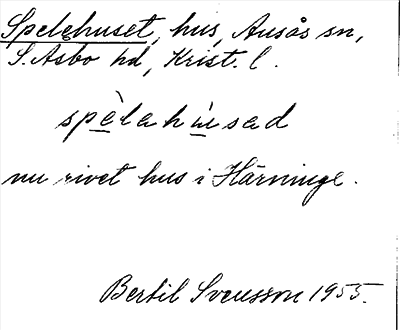 Spelehuset, hus, Ausås sn,
S. Åsbo hd, Krist. l.
spèlahùsad
nu rivet hus i Härninge.
Bertil Svensson 1955.